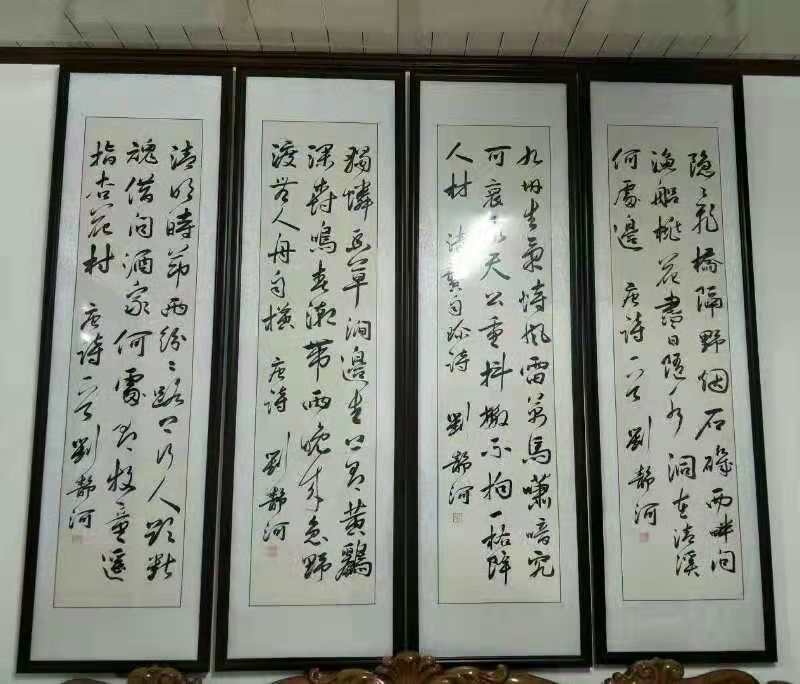 隐〻飛橋隔野烟石磯西畔问
渔船桃花盡日随水洞在清溪
何處邊 唐詩一首 劉静河
九州生氣恃風雷萬馬嘯喑究
可哀我天公重抖擞不拘一格降
人材 清龔自珍詩 劉静河
獨憐幽草涧邊生上有黄鸝
深樹鳴春潮帶雨晚来急野
渡無人舟自横 唐詩 劉静河
清明時節雨纷〻路上行人欲断
魂借问酒家何處有牧童遥
指杏花村 唐詩一首 劉静河